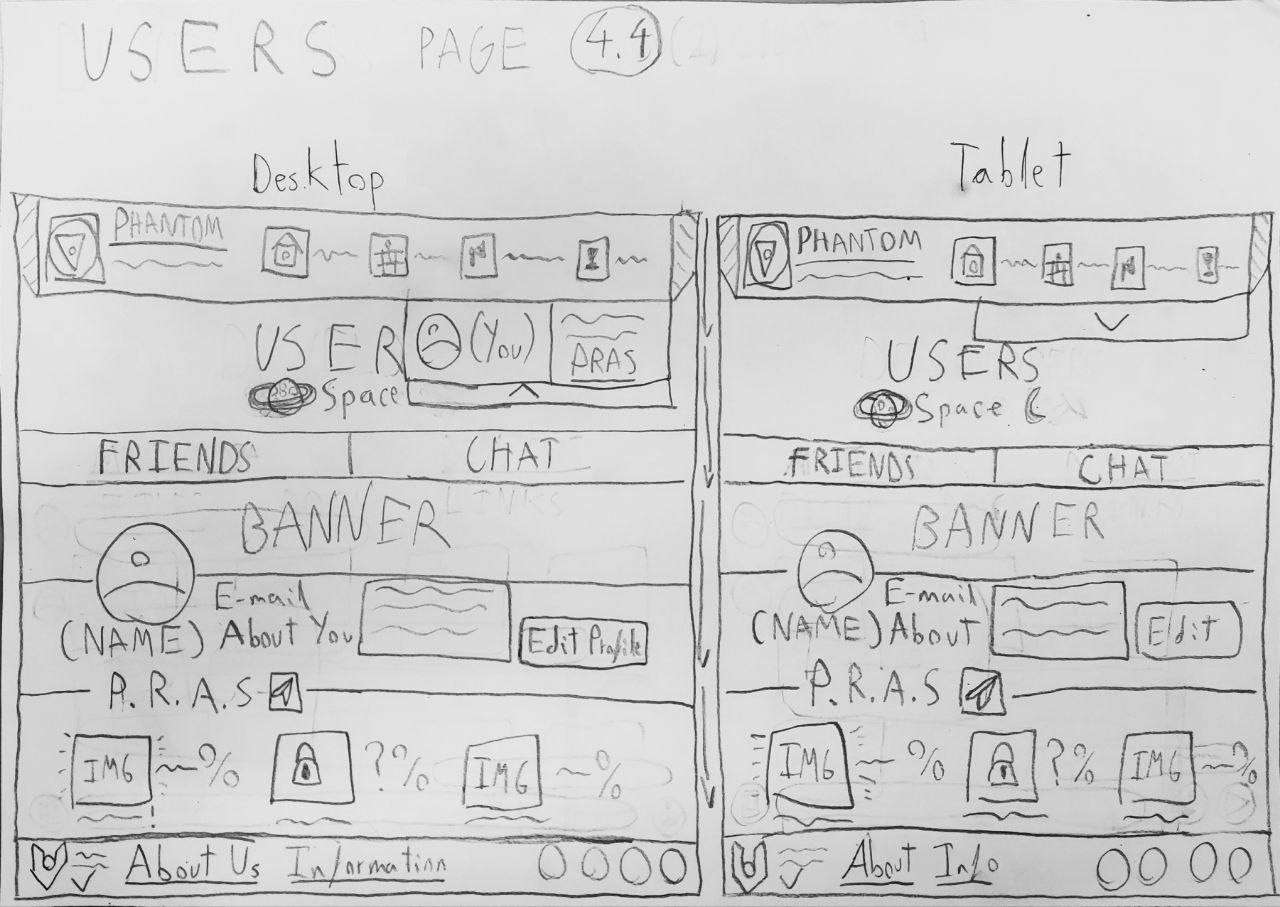 USERS PAGE 4.4
Desktop
PHANTOM
USER
Space
(You)
PRAS
FRIENDS
CHAT
BANNER
E-mail
(NAME) About You
Edit Profile
P.R.A.S
IMG %
?%
IMG %
About Us Information
Tablet
PHANTOM
USERS
Space
FRIENDS
CHAT
BANNER
E-mail
(NAME) About
Edit
P.R.A.S
IMG %
?%
IMG %
About Info